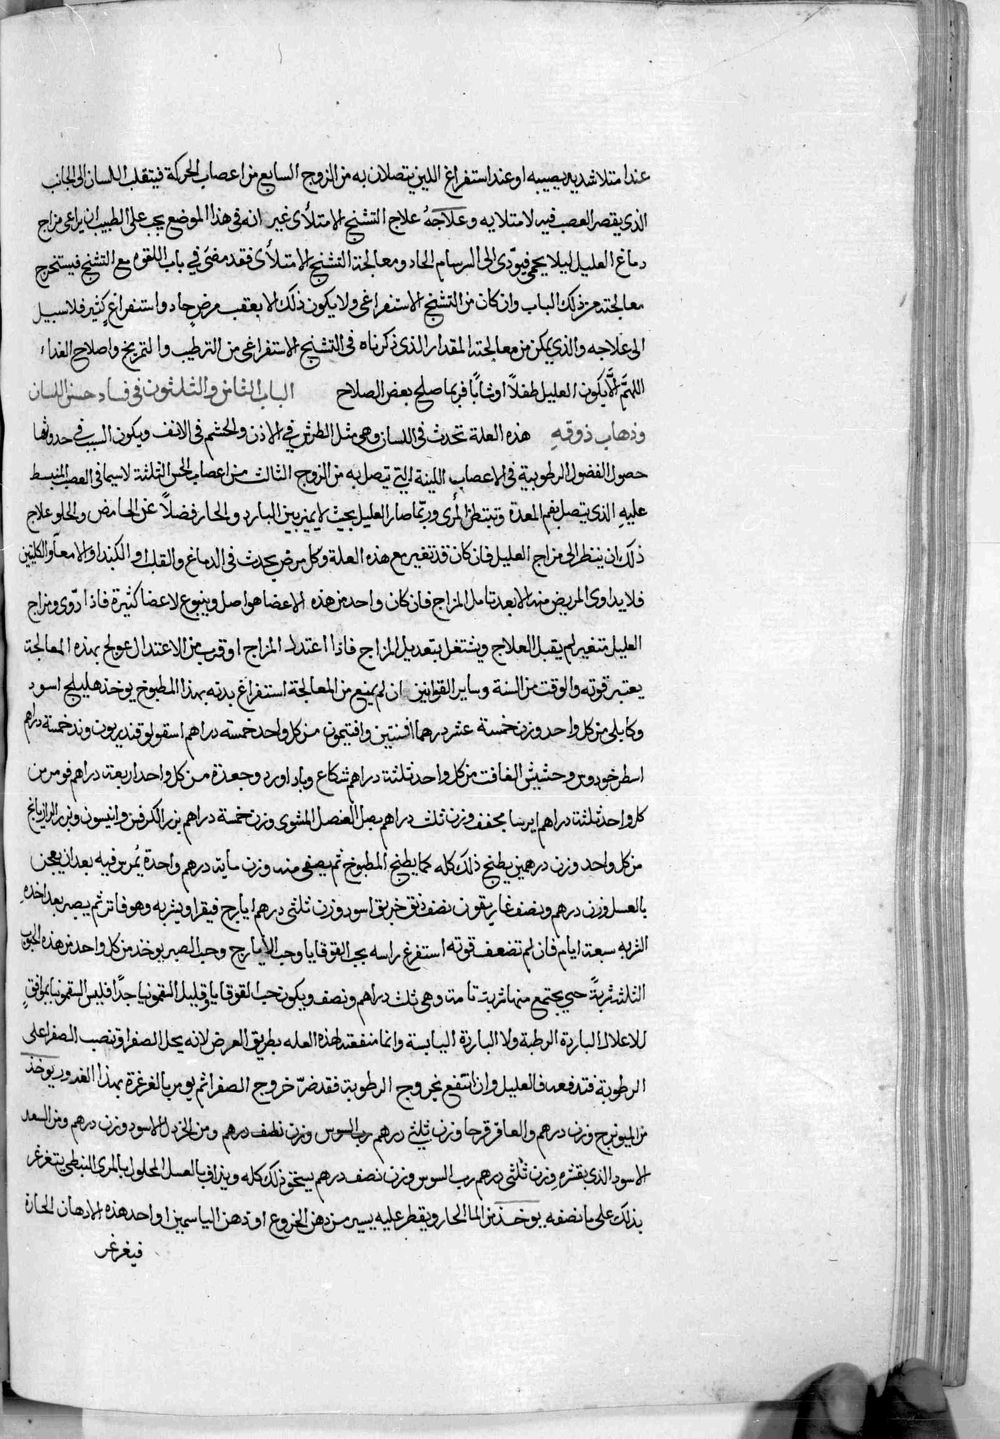 عند امتلا شديد يصيبه او عند استفراغ اللذين يتصلان به من الزوج السابع من اعصاب الحركة فيتقلب اللسان الى الجانب
الذي يقصر العصب فيه لامتلايه وعلاجه علاج التشنج الامتلأى غير انه في هذا الموضع يجب على الطبيب ان يراعى مزاج
دماغ العليل ليلا يحمى فيودّى الى السرسام الحاد ومعالجة التشنج الامتلأى فقد مضى في باب اللقوه مع التشنج فيستخرج
معالجته من ذلك الباب وان كان من التشنج الاستفراغى ولا يكون ذلك الا بعقب مرض حاد واستفراغ كثير فلا سبيل
الى علاجه والذي يمكن من معالجته المقدار الذي ذكرناه في التشنج الاستفراغى من الترطيب والتمريخ واصلاح الغذاء
اللهمّ الّا يكون العليل طفلاً او شابًا فربما صلح بعض الصلاح الباب الثامن والثلثون في فساد حس اللسان
وذهاب ذوقه هذه العلة تحدث في اللسان وهي مثل الطرش في الاذن والخشم في الانف ويكون السبب في حدوثها
حصول الفضول الرطوبية في الاعصاب اللينة التي تتصل به من الزوج الثالث من اعصاب الحس الثلثة لا سيما في العصب المنبسط
عليه الذي يتصل بفم المعدة وتبتطن المرى وربّما صار العليل بحيث لا يميز بين البارد والحار فضلاً عن الحامض والحلو علاج
ذلك ان ينظر الى مزاج العليل فان كان قد تغير مع هذه العلة وكل مرض يحدث في الدماغ والقلب او الكبد او الامعآ والكليتين
فلا يداوى المريض منه الا بعد تامل المزاج فان كان واحد من هذه الاعضا هو اصل وينبوع لاعضا كثيرة فاذا دوّى ومزاج
العليل متغير لم يقبل العلاج ويشتغل بتعديل المزاج فاذا اعتدل المزاج او قرب من الاعتدال عولج بهذه المعالجة
يعتبر قوته والوقت من السنة وساير القوانين ان لم يمنع من المعالجة استفراغ بدنه بهذا المطبوخ يوخذ هليلج اسود
وكابلى من كل واحد وزن خمسة عشر درهما افسنتين وافتيمون من كل واحد خمسة دراهم اسقولوقندريون وزند خمسة دراهم
اسطوخودوس وحشيش الغافت من كل واحد ثلثة دراهم شكاع وباداورد وجعدة من كل واحد اربعة دراهم فو مر من
كل واحد ثلثة دراهم ايرسا مجفف وزن ثلث دراهم بصل العنصل المشوى وزن خمسة دراهم بزر الكرفس وانيسون وبزر الرازيانج
من كل واحد وزن درهمين يطبخ ذلك كله كما يطبخ المطبوخ ثم يصفى منه وزن مايه درهم واحدة يمرس فيه بعد ان يعجن
بالعسل وزن درهم ونصف غاريقون نصف دنق خربق اسود وزن ثلثى درهم ايارج فيقرا ويشربه وهو فاتر ثم يصبر بعد اخذه
الشربه سبعة ايام فان لم تضعف قوته استفرغ راسه بحب القوقايا وحب الايارج وحب الصبر يوخذ من كل واحد من هذه الحبوب
الثلثة شربةً حتى يجتمع منها شربة تامة وهي ثلث دراهم ونصف ويكون حب القوقايا قليل السقمونيا جدًا فليس السقمونيا بموافق
للاعلال الباردة الرطبة ولا الباردة اليابسة وانما منفعته لهذه العله بطريق العرض لانه يحل الصفرا وتنصب الصفرا على
الرطوبة فتدفعه فالعليل وان انتفع بخروج الرطوبة فقد ضرّ خروج الصفرا ثم يومر بالغرغرة بهذا الغرور يوخذ
من الميويزج وزن درهم والعاقرقرحا وزن ثلثى درهم رب السوس وزن نصف درهم ومن الخردل الاسود وزن درهم ومن السعد
الاسود الذي يقشره وزن ثلثى درهم رب السوس وزن نصف درهم يسحق ذلك كله ويذاف بالعسل المحلول بالمرى النبطى يتغرغر
بذلك على ما نصفه يوخذ من الما الحار ويقطر عليه يسير من دهن الخروع او دهن الياسمين او احد هذه الادهان الحارة
فيغرغر